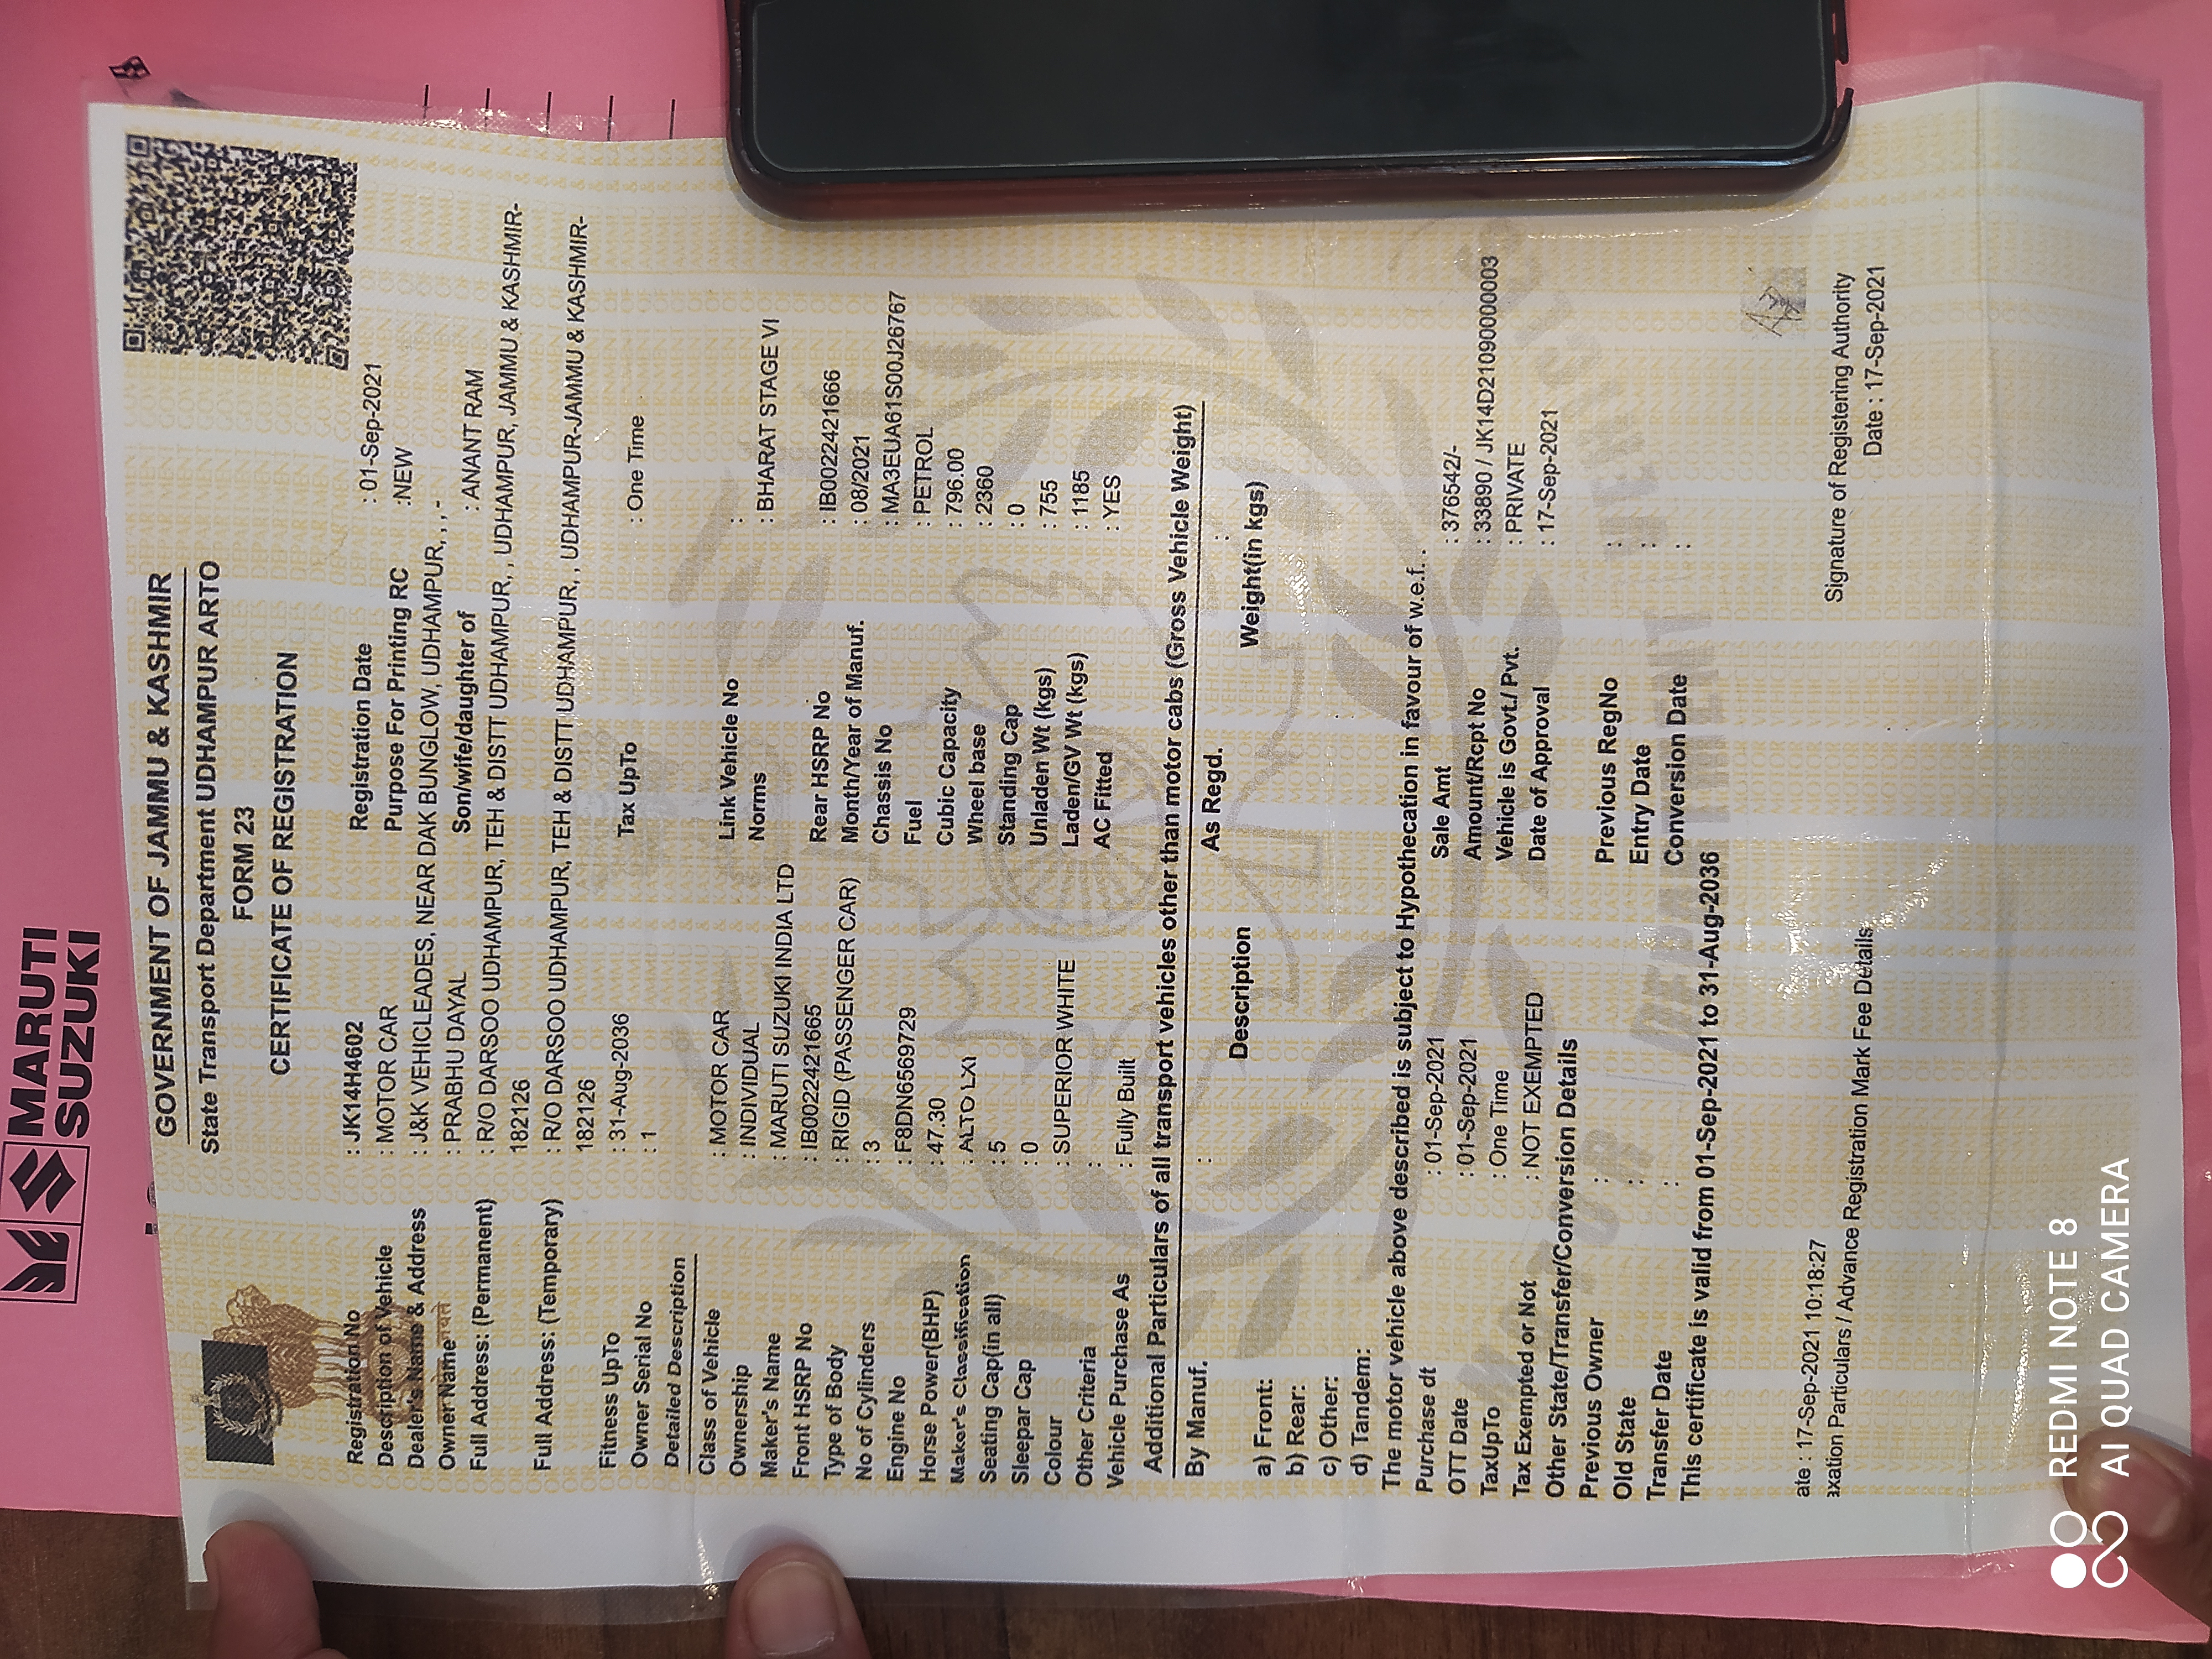 MARUTI
SUZUKI
GOVERNMENT OF JAMMU & KASHMIR
State Transport Department UDHAMPUR ARTO
FORM 23
CERTIFICATE OF REGISTRATION
Registration No : JK14H4602 Registration Date : 01-Sep-2021
Description of Vehicle : MOTOR CAR Purpose For Printing RC :NEW
Dealer's Name & Address : J&K VEHICLEADES, NEAR DAK BUNGLOW, UDHAMPUR, , , -
Owner Name : PRABHU DAYAL Son/wife/daughter of : ANANT RAM
Full Address: (Permanent) : R/O DARSOO UDHAMPUR, TEH & DISTT UDHAMPUR, , UDHAMPUR, JAMMU & KASHMIR-
182126
Full Address: (Temporary) : R/O DARSOO UDHAMPUR, TEH & DISTT UDHAMPUR, , UDHAMPUR-JAMMU & KASHMIR-
182126
Fitness UpTo : 31-Aug-2036 Tax UpTo : One Time
Owner Serial No : 1
Detailed Description
Class of Vehicle : MOTOR CAR Link Vehicle No :
Ownership : INDIVIDUAL Norms : BHARAT STAGE VI
Maker's Name : MARUTI SUZUKI INDIA LTD
Front HSRP No : IB002242166​5 Rear HSRP No : IB0022421666
Type of Body : RIGID (PASSENGER CAR) Month/Year of Manuf. : 08/2021
No of Cylinders : 3 Chassis No : MA3EUA61S00J26767
Engine No : F8DN6569729 Fuel : PETROL
Horse Power(BHP) : 47.30 Cubic Capacity : 796.00
Maker's Classification : ALTO LXI Wheel base : 2360
Seating Cap(in all) : 5 Standing Cap : 0
Sleepar Cap : 0 Unladen Wt (kgs) : 755
Colour : SUPERIOR WHITE Laden/GV Wt (kgs) : 1185
Other Criteria : AC Fitted : YES
Vehicle Purchase As : Fully Built
Additional Particulars of all transport vehicles other than motor cabs (Gross Vehicle Weight)
By Manuf. : As Regd. :
Description Weight(in kgs)
a) Front:
b) Rear:
c) Other:
d) Tandem:
The motor vehicle above described is subject to Hypothecation in favour of w.e.f. .
Purchase dt : 01-Sep-2021 Sale Amt : 376542/-
OTT Date : 01-Sep-2021 Amount/Rcpt No : 33890 / JK14D21090000003
TaxUpTo : One Time Vehicle is Govt./ Pvt. : PRIVATE
Tax Exempted or Not : NOT EXEMPTED Date of Approval : 17-Sep-2021
Other State/Transfer/Conversion Details
Previous Owner : Previous RegNo :
Old State : Entry Date :
Transfer Date : Conversion Date :
This certificate is valid from 01-Sep-2021 to 31-Aug-2036
ate : 17-Sep-2021 10:18:27
axation Particulars / Advance Registration Mark Fee Details
Signature of Registering Authority
Date : 17-Sep-2021
REDMI NOTE 8
AI QUAD CAMERA